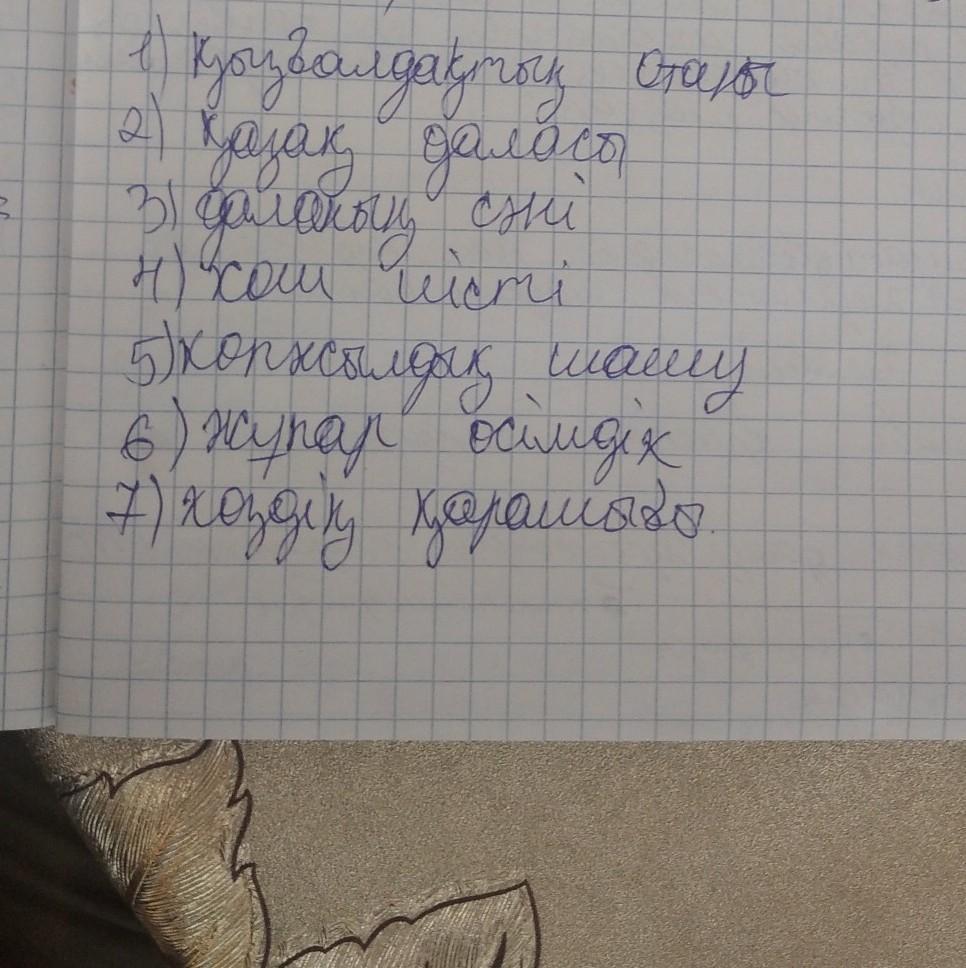 1) Қызғалдақтың Отаны
2) Қазақ даласы
3) даланың сәні
4) хош иісті
5) көпжылдық шашу
6) жұпар өсімдік
7) көздің қарашығы.